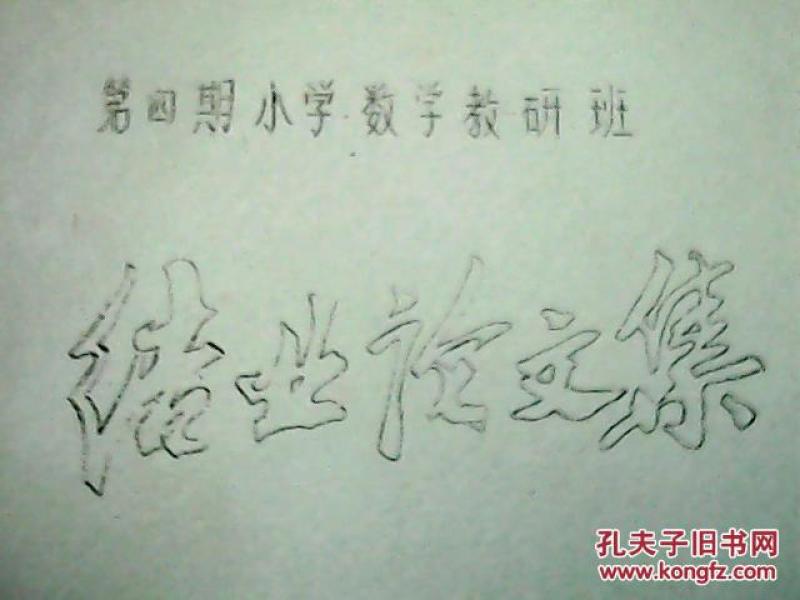 第四期小学数学教研班
结业论文集
孔夫子旧书网
www.kongfz.com